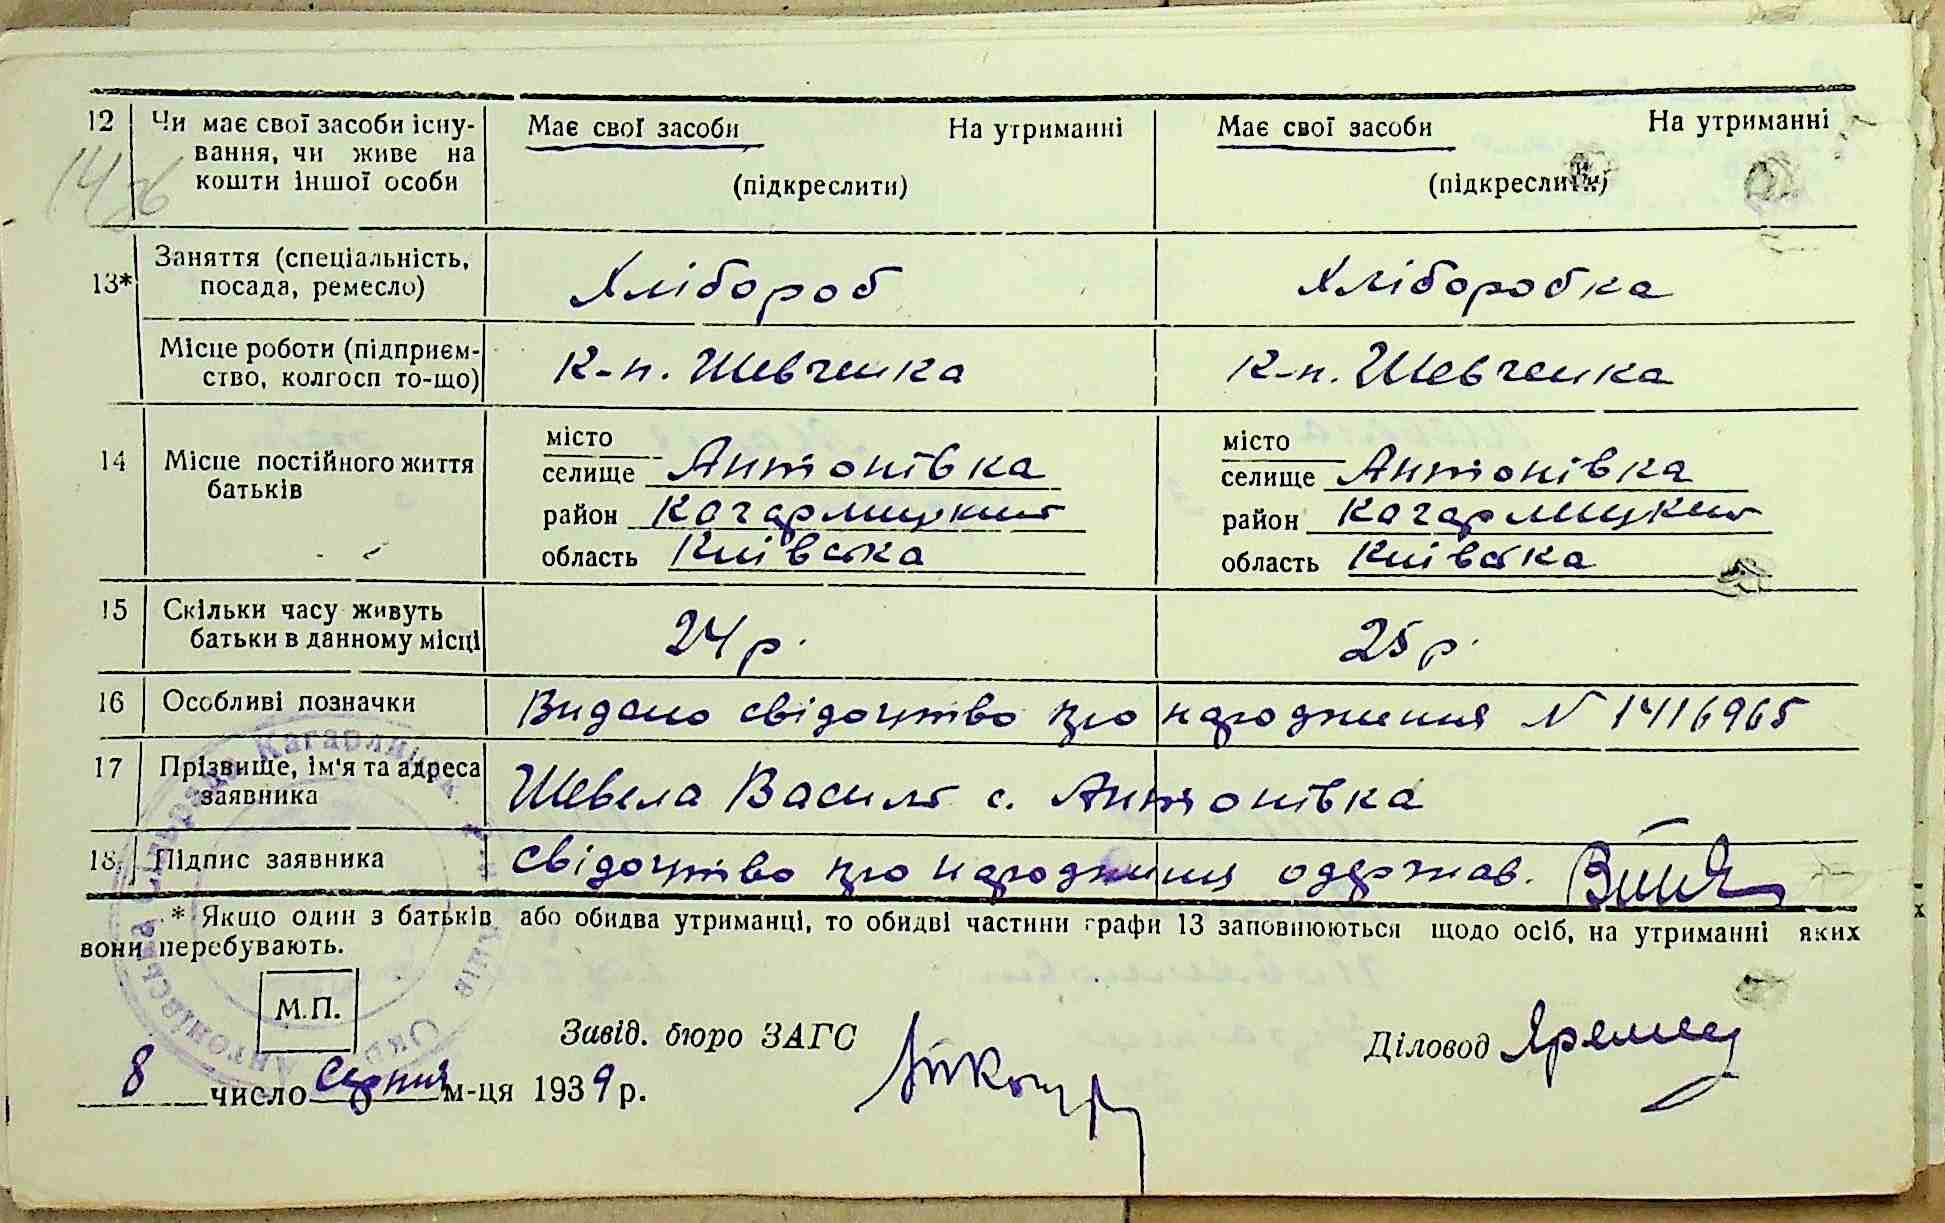 12 Чи має свої засоби існу- Має свої засоби На утриманні Має свої засоби На утриманні
вання, чи живе на
кошти іншої особи (підкреслити) (підкреслити)
13* Заняття (спеціальність,
посада, ремесло) Хлібороб Хліборобка
Місце роботи (підприєм-
ство, колгосп то-що) К-п. Шевченка К-п. Шевченка
14 Місце постійного життя
батьків
місто місто
селище Антонівка селище Антонівка
район Кагарлицкий район Кагарлицкий
область Київська область Київська
15 Скільки часу живуть
батьки в данному місці 24 р. 25 р.
16 Особливі позначки Видано свідоцтво про народження N 1416965
17 Прізвище, ім'я та адреса
заявника Шевела Василь с. Антонівка
18 Підпис заявника свідоцтво про народження одержав.
* Якщо один з батьків або обидва утриманці, то обидві частини графи 13 заповнюються щодо осіб, на утриманні яких
вони перебувають.
М.П.
Завід. бюро ЗАГС
Діловод Яремен
8 число Серпня м-ця 1939 р.